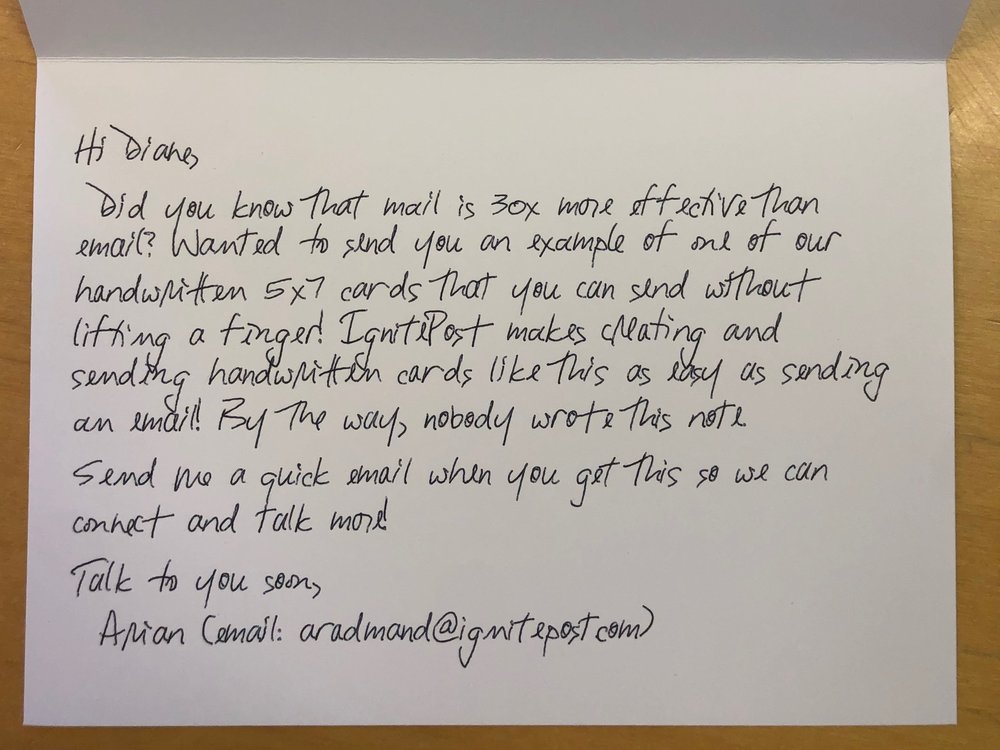 Hi Diane,
Did you know that mail is 30x more effective than
email? Wanted to send you an example of one of our
handwritten 5x7 cards that you can send without
lifting a finger! IgnitePost makes creating and
sending handwritten cards like this as easy as sending
an email! By the way, nobody wrote this note.
Send me a quick email when you get this so we can
connect and talk more!
Talk to you soon,
Arian (email: aradmand@ignitepost.com)